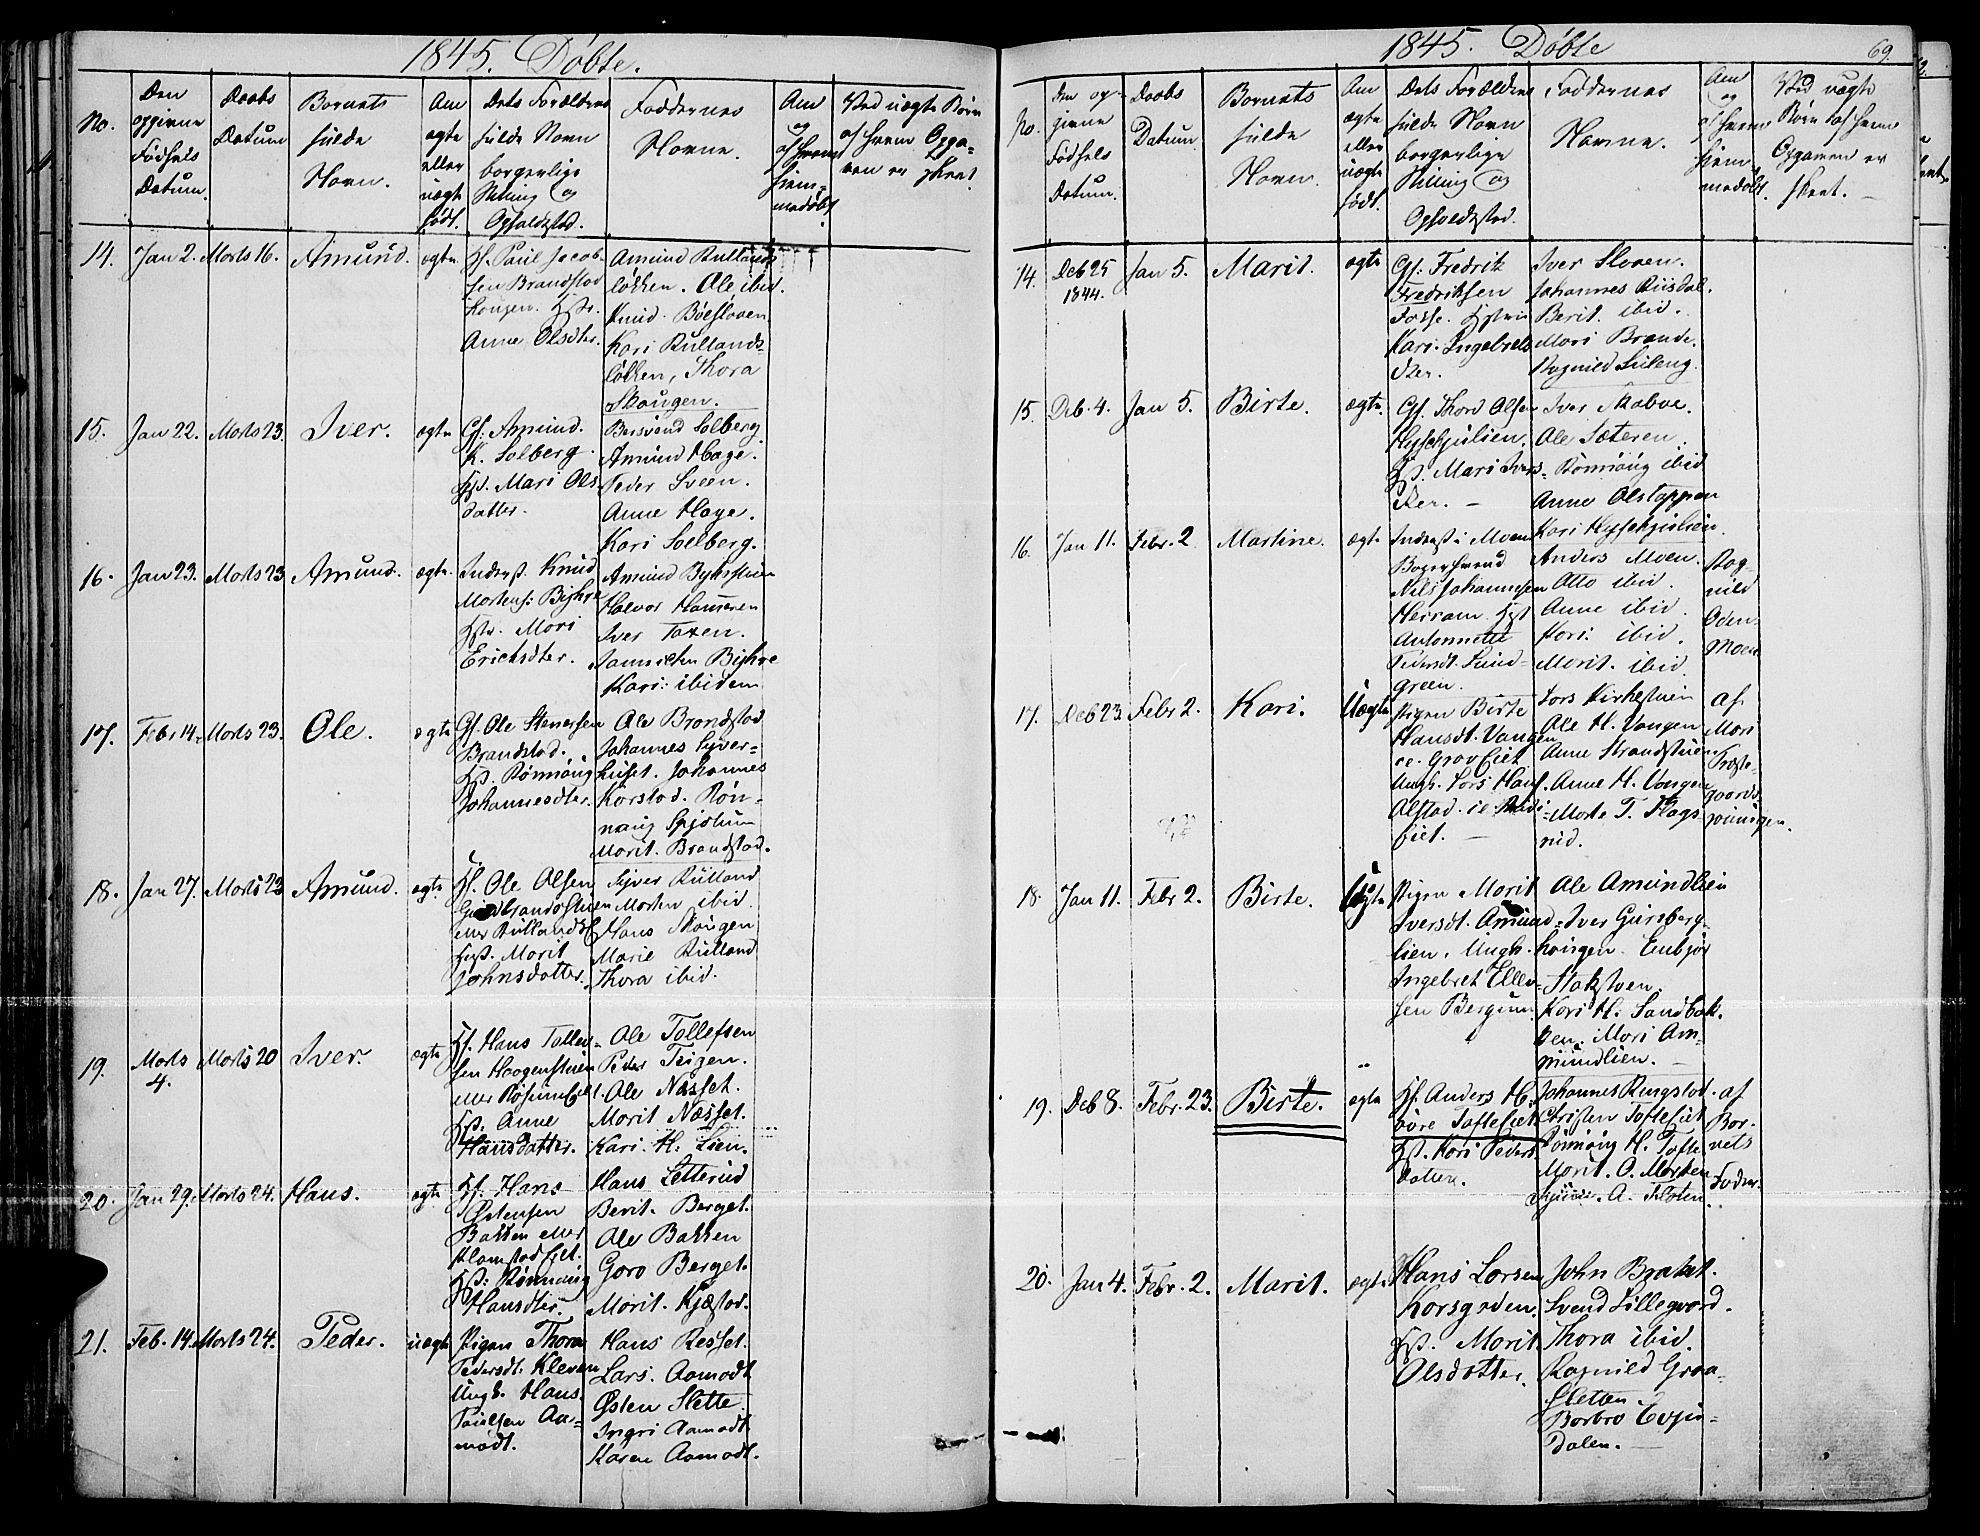 1845. Døbte.
No.
Den opgivne Fødsels Datum.
Daabs Datum
Barnets fulde Navn.
Om ægte eller uægte født.
Dets Forældres fulde Navn borgerlige Stilling og Opholdssted.
Faddernes Navne.
Om og af hvem hjemmedøbt
Ved uægte Børn af hvem Opgaven er skeet
14. Jan 2. Marts 16. Amund. ægte
Gf. Paul Jacob-
sen Brandstad
haugen. Hstr.
Anne Olsdter.
Amund Rullands
løkken. Ole ibid.
Knud Böeslöven
Kari Rullands-
løkken, Thora
Skougen.
15. Jan 22. Marts 23. Iver. ægte
Gf. Amund
K. Solberg
Hst. Mari Ols-
datter.
Bersvend Solberg
Amund Hage.
Peder Sveen.
Anne Hage.
Kari Solberg.
16. Jan 23. Marts 23 Amund. ægte.
Inderst. Knud
Mortens: Byhre
Hstr. Mari
Erichsdter.
Amund Byhrstuen
Halvor Hameren
Iver Toxen.
Byhre
Kari: ibidem
17. Febr 14. Marts 23. Ole. ægte
Gf. Ole Stenersen
Brandstad.
Hst. Rønnaug
Johannesdter.
Ole Brandstad
Johannes Syver-
huset. Johannes
Korstad. Røn-
naug
Marit. Brandstad.
18. Jan 27. Marts 23 Amund. ægte
Hf. Ole Olsen
Gudbrandsstuen
eller
Hst. Marit
Johnsdatter.
Syver Rulland
Morten ibid.
Hans Skougen
Marie Rulland
Thora ibid.
19. Marts 4. Marts 20 Iver. ægte
Hf. Hans Tollev-
sen Haagenstuen
eller
Hst. Anne
Hansdatter.
Ole Tollefsen
Peder Teigen.
Ole Næsset.
Marit Næsset.
Kari. H. Lien.
20. Jan 29. Marts 24. Hans. ægte
Hf. Hans
Østensen
Bakken eller
Hst: Rønnaug
Hansdter.
Hans Letterud
Berit. Berget.
Ole Bakken
Goro Berget.
Marit. Kjæstad.
21. Feb. 14. Marts 24. Peder. uægte
Pigen Thora
Pedersdt. Kleven
Ungk. Hans
Paulsen Aa-
modt.
Hans Resset.
Lars. Aamodt
Østen Slette.
Ingri Aamodt
Karen Aamodt.
1845. Døbte
69.
No.
Den opgivne Fødsels Datum.
Daabs Datum
Barnets fulde Navn.
Om ægte eller uægte født.
Dets Forældres fulde Navn borgerlige Stilling og Opholdssted.
Faddernes Navne.
Om og af hvem hjemmedøbt.
Ved uægte Børn af hvem Opgaven er skeet.
14. Deb 25 1844. Jan 5. Marit. ægte
Gf. Fredrik
Fredriksen
Fosse. Hstrn
Kari. Ingebrets
dter.
Iver Sloven.
Johannes Riisdal.
Berit. ibid.
Mari Brande.
Rognild Lileng.
15. Deb. 4. Jan 5. Birte. ægte.
Gf. Thord Olsen
Hst. Mari Ivers-
dter.
Iver Skaboe.
Ole Sæteren.
Rønnoug ibid
Anne Olstappen
Kari
16. Jan 11. Febr. 2 Martine. ægte
Inderst i Moen
Bogerfvend
Nils Johannesen
Herram. Hst
Antonnette
Pedersdt. Lund-
green.
Anders Moen.
Otto ibid.
Anne ibid.
Kari ibid.
Marit. ibid.
Rog-
nild
Oden
Moen
17. Deb 23. Febr 2. Kari. Uægte
Pigen Birte
Hansdt. Vangen
Ungk. Lars Hans.
Alstad.
Lars Kirkestuen
Ole H. Vangen
Anne Strandstuen
Anne H. Vangen
Marte T. Flags-
rud.
af
Mari
Præste-
gaards
18. Jan 11. Febr 2. Birte. Uægte
Pigen Marit
Iversdt. Amund-
lien. Ungk.
Ingebret Ellev-
sen Bergum.
Ole Amundlien
Iver Guisberg-
haugen. Embjør
Stakstuen.
Kari H. Sandbak-
ken. Mari Am-
mundlien.
19. Deb 8. Febr. 23. Birte. ægte
Hf. Anders H.
Hst. Kari Peders
datter.
Johannes Ringstad.
Christen Tofteeiet
Rønnaug H. Tofte
Marit. O. Morken
A. Floten.
af
Bar-
nets
Fader.
20. Jan 4. Febr. 2. Marit. ægte
Hans Larsen
Korsgrden
Hst. Marit
Olsdatter.
John Brakat.
Svend Lillegaard.
Thora ibid.
Ragnild Graa-
sletten
Barbro Evjen-
dalen.